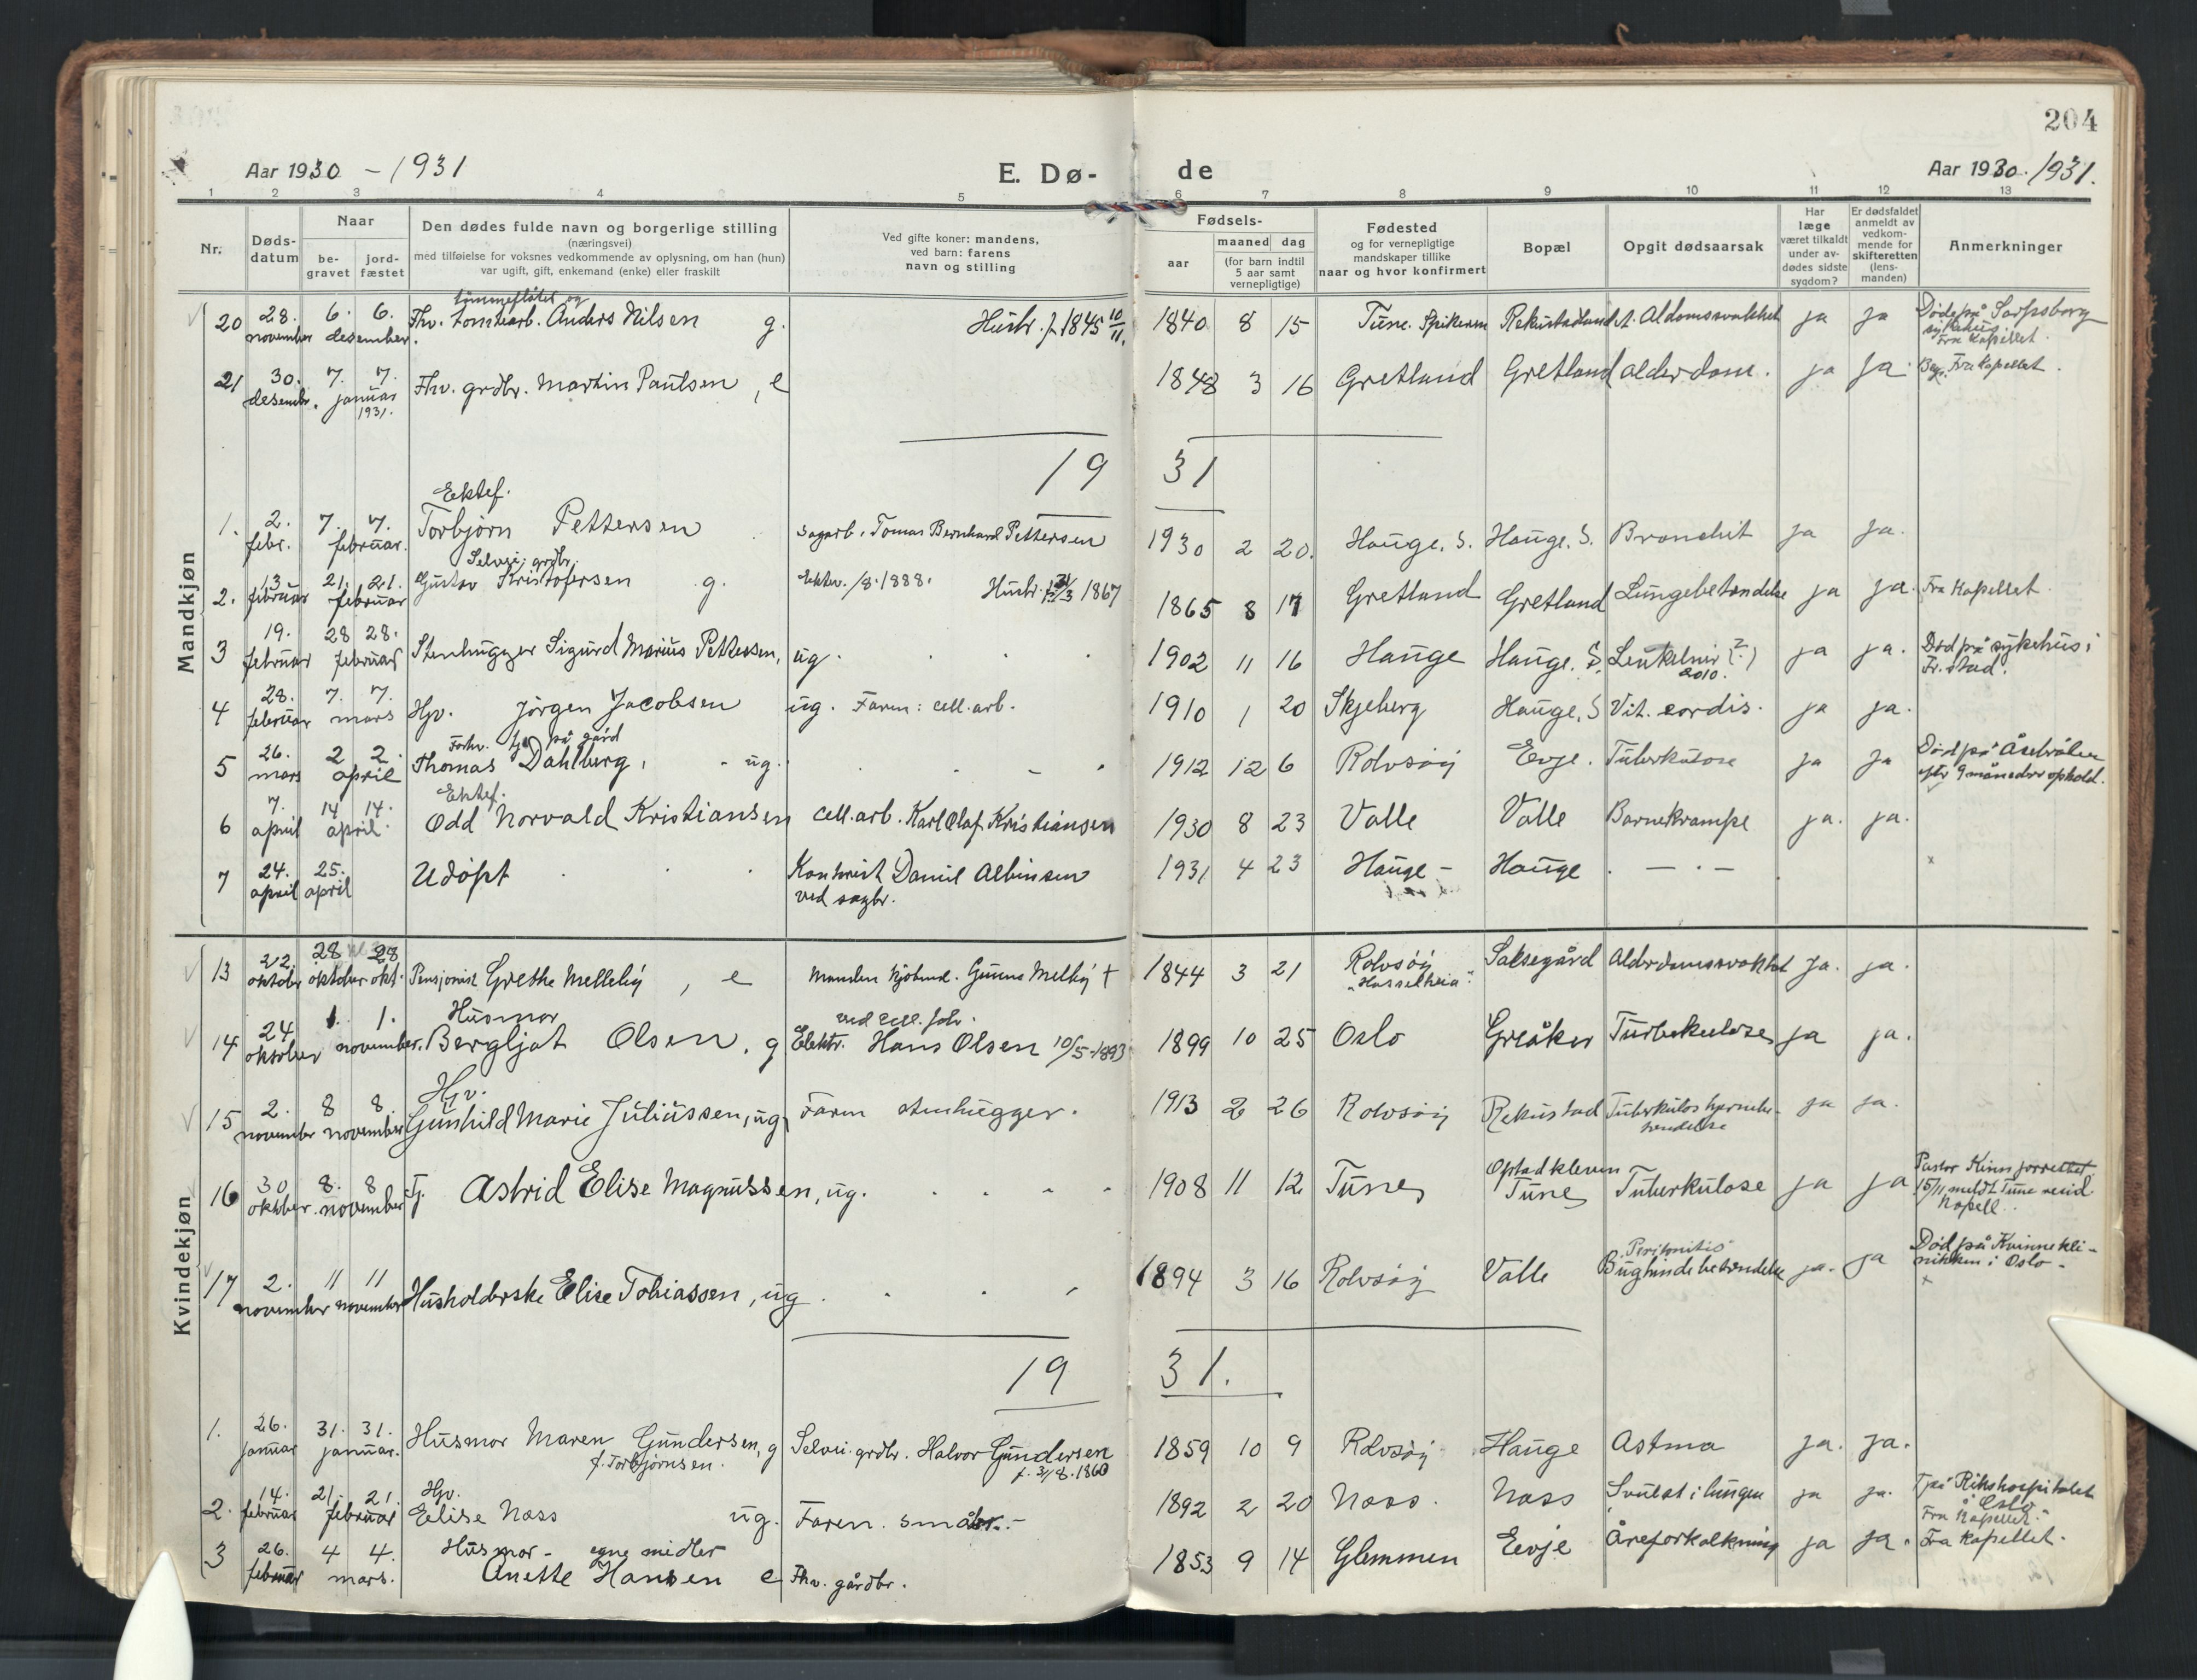 204
Aar 1930 - 1931
E. Dø-
de
Aar 1930. 1931.
1 2 3 4 5 6 7 8 9 10 11 12 13
Nr.
Døds-
datum
Naar
be-
gravet
jord-
fæstet
Den dødes fulde navn og borgerlige stilling
(næringsvei)
med tilføielse for voksnes vedkommende av oplysning, om han (hun)
var ugift, gift, enkemand (enke) eller fraskilt
Ved gifte koner: mandens,
ved barn: farens
navn og stilling
Fødsels-
aar
maaned dag
(for barn indtil
5 aar samt
vernepligtige)
Fødested
og for vernepligtige
mandskaper tillike
naar og hvor konfirmert
Bopæl
Opgit dødsaarsak
Har
læge
været tilkaldt
under av-
dødes sidste
sygdom?
Er dødsfaldet
anmeldt av
vedkom-
mende for
skifteretten
(lens-
manden)
Anmerkninger
Mandkjøn
20 28. november 6. 6. desember. Fhv. tomtearb. Anders Nilsen g. Hustr. f. 1845 10/11. 1840 8 15 Tune. Spikeren ja ja Døde på Sarpsborg
sykehus.
Fra Kapellet.
21 30. desembr. 7. 7. januar 1931. Fhv. grdbr. Martin Paulsen, e 1848 3 16 Gretland Gretland alderdom. ja ja. Beg. Fra Kapellet.
19 31
1. 2. febr. 7. 7. februar. Ektef.
Torbjørn Pettersen sagarb. Tomas Bernhard Pettersen 1930 2 20. Hauge. S. Hauge. S. Bronchit ja ja.
2. 13 februar 21. 21. februar Selvei. grdbr.
Gustav Kristofersen g. Ektev. /8. 1888. Hustr. 1867 1865 8 17 Gretland Gretland Lungebetendelse ja ja. Fra Kapellet.
3 19. februar 28 28. februar Stenhugger Sigurd Marius Pettersen, ug. 1902 11 16 Hauge Hauge. S. ja ja. Død på sykehus i
Fr.stad.
4 28. februar 7. 7. mars Hjv. Jörgen Jacobsen ug. Faren: cell.arb. 1910 1 20 Skjeberg Hauge, S Vit. cordis. ja ja.
5 26. mars 2 2. april Forhv. på gård
Thomas Dahlberg, ug. 1912 12 6 Rolvsøy Evje. Tuberkulose ja ja Død på
efter 9 måneders ophold.
6 7. april 14 14. april. Ektef.
Odd Norvald Kristiansen cell.arb. Karl Olaf Kristiansen 1930 8 23 Valle Valle Barnekrampe ja. ja.
7 24. april 25. april Udøpt Kontorist Daniel Albinsen
ved sagbr. 1931 4 23 Hauge - Hauge
Kvindekjøn
13 22. oktober 28 oktober 28 okt. Pensjonist Grethe Melleby, e Manden Gunnar Melleby † 1844 3 21 Rolvsøy
"Hasselheia". Saksegård Alderdomssvakhet Ja. ja.
14 24 oktober 1. 1. november. Husmor
Bergljot Olsen. g ved cell. fabr.
Elektr. Hans Olsen 10/5-1893 1899 10 25 Oslo Greåker Turberkulose ja ja.
15 2. november 8 8. november Hjv.
Gunhild Marie Juliussen, ug Faren stenhugger. 1913 2 26 Rolvsøy Rekustad ja ja.
16 30 oktober. 8. 8 november Tj. Astrid Elise Magnussen, ug. 1908 11 12 Tune Opstadkleven
Tune Tuberkulose ja ja Pastor Kinn forrettet
15/11 meldt Tune resid.
Kapell.
17 2. november 11 11 november Husholderske Elise Tobiassen, ug 1894 3 16 Rolvsøy Valle "Peritonitis"
Bughindebetendelse ja. ja Død på Kvinnekli-
nikken i Oslo.
19 31.
1. 26. januar 31. 31. januar. Husmor Maren Gundersen, g
f. Torbjørnsen. Selvei. grdbr. Halvor Gundersen
f. 3/8. 1860 1859 10 9 Rolvsøy Hauge Astma ja. ja.
2. 14. februar 21. 21. februar Hjv.
Elise Næss ug. Faren. småbr. 1892 2 20 Næss. Næss Svulst i lungen ja ja. † på Rikshospitalet
i Oslo.
Fra Kapellet.
3 26. februar 4 4. mars. Husmor - egne midler
Anette Hansen e Fhv. gårdbr. 1853 9 14 Glemmen Evje Åreforkalkning ja ja. Fra Kapellet.